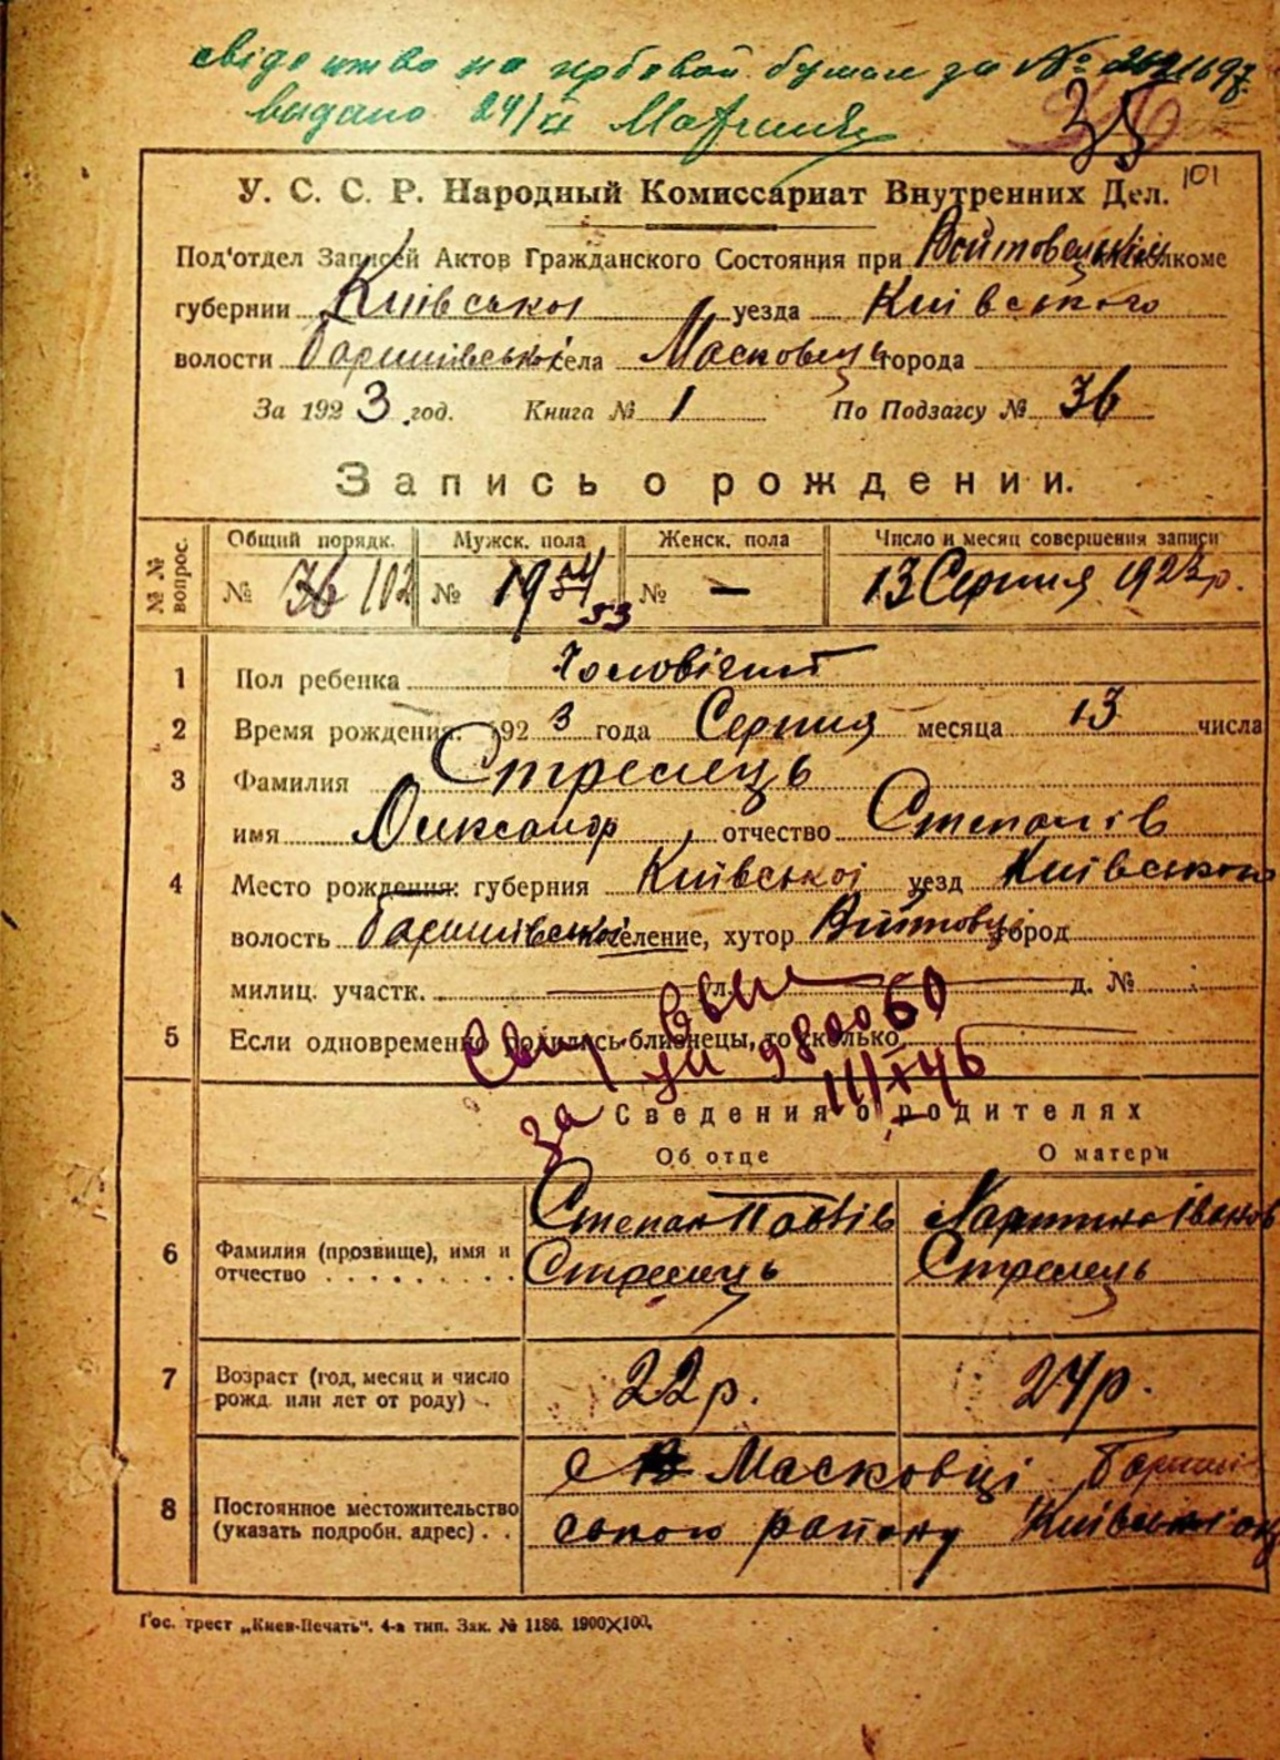 свідоцтво на гербовой бумаге за №
видано 24/
35
101
У. С. С. Р. Народный Комиссариат Внутренних Дел.
Под'отдел Записей Актов Гражданского Состояния при Войтовецькім Исполкоме
губернии Київської уезда Київського
волости Баришівської села Масковець города
За 1923 год. Книга № 1 По Подзагсу № 36
Запись о рождении.
№ № вопрос. Общий порядк. Мужск. пола Женск. пола Число и месяц совершения записи
№ 36/102 № 19 № — 13 Серпня 1923 р.
53
1 Пол ребенка Чоловічий
2 Время рождения: 1923 года Серпня месяца 13 числа
3 Фамилия Стрелець
имя Олександр, отчество Степанів
4 Место рождения: губерния Київської уезд Київського
волость Баришівської селение, хутор Війтовці город
милиц. участк. ул. д. №
5 Если одновременно родились близнецы, то сколько
за 980060
III/X 46
Сведения о родителях
Об отце О матери
6 Фамилия (прозвище), имя и отчество Степан Павлів Стрелець Іванов Стрелець
7 Возраст (год, месяц и число рожд. или лет от роду) 22 р. 24 р.
8 Постоянное местожительство (указать подробн. адрес) с Масковці Бориш
ського району Київської
Гос. трест „Киев-Печать". 4-я тип. Зак. № 1186. 1900×100.